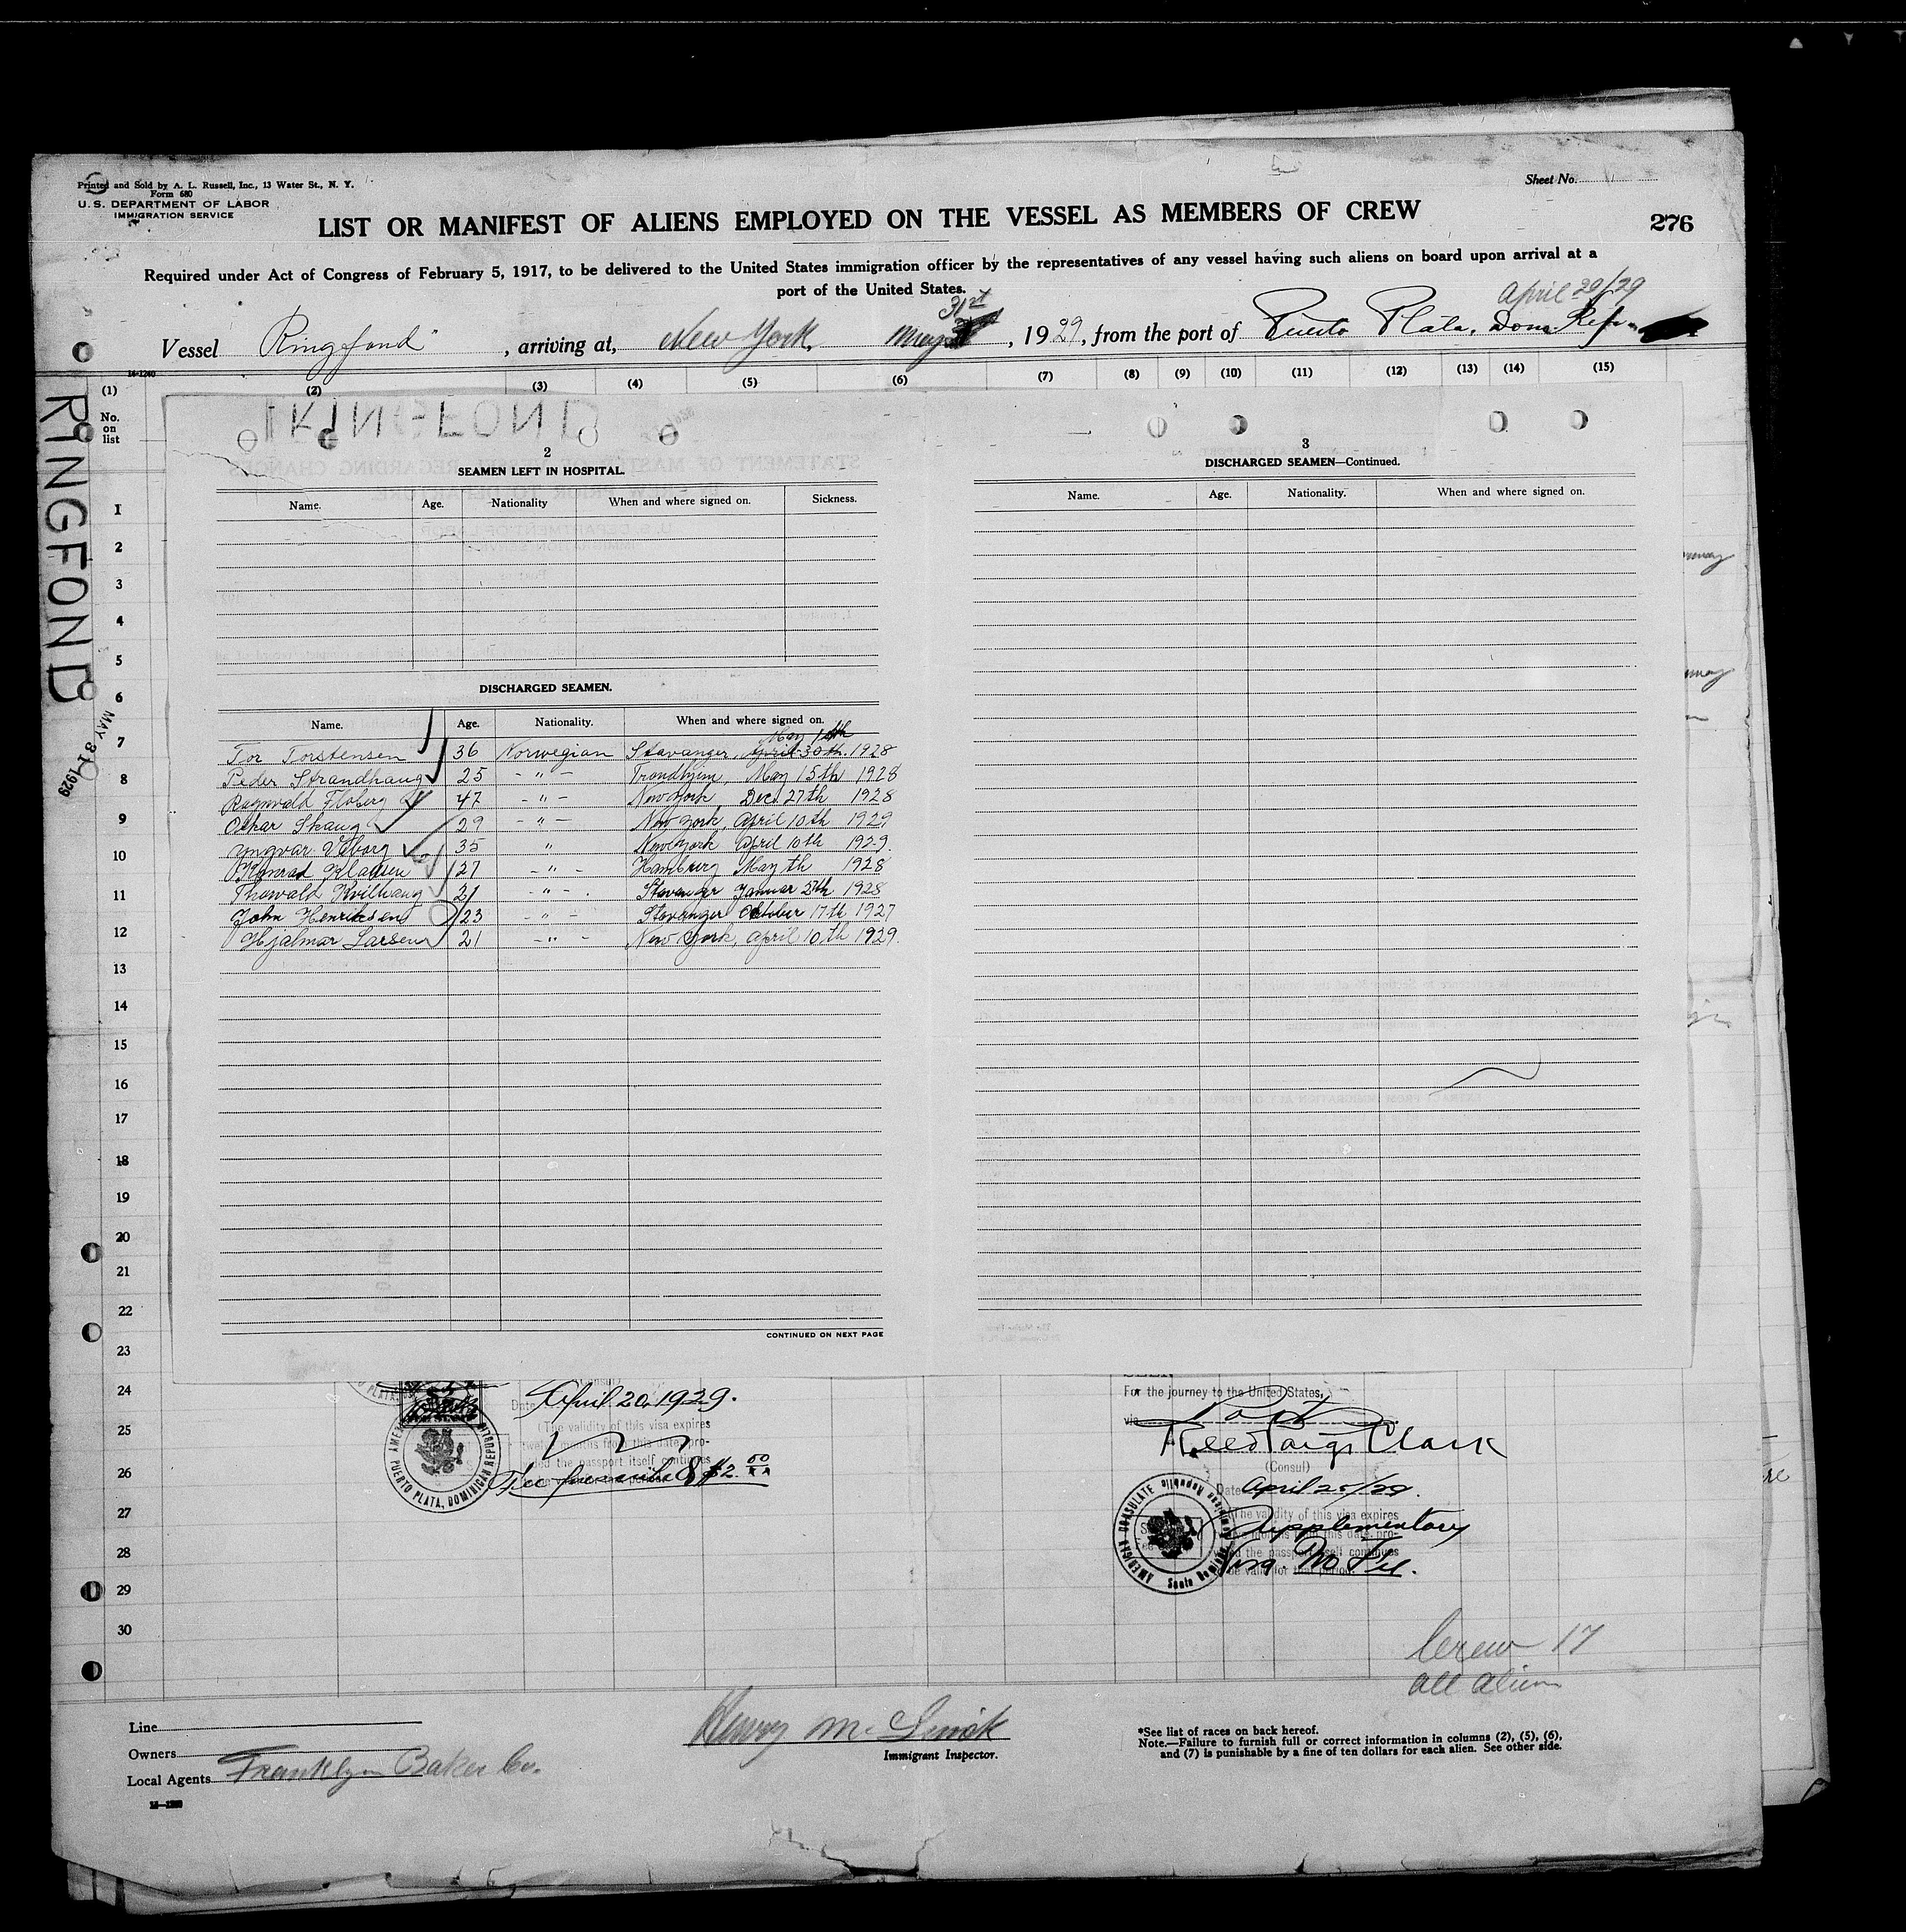 Printed and Sold by A. L. Russell, Inc., 13 Water St., N. Y.
Form 680
U. S. DEPARTMENT OF LABOR
IMMIGRATION SERVICE
Sheet No.
LIST OR MANIFEST OF ALIENS EMPLOYED ON THE VESSEL AS MEMBERS OF CREW
276
Required under Act of Congress of February 5, 1917, to be delivered to the United States immigration officer by the representatives of any vessel having such aliens on board upon arrival at a
port of the United States.
April 29/29
31st
Vessel Ringfond", arriving at, New York, May, 1929, from the port of Puerto Plata, Dom. Rep.
14-1240
(1) (2) (3) (4) (5) (6) (7) (8) (9) (10) (11) (12) (13) (14) (15)
No.
on
list
RINGFOND
MAY 31 1929
2
SEAMEN LEFT IN HOSPITAL.
Name. Age. Nationality When and where signed on. Sickness.
3
DISCHARGED SEAMEN—Continued.
Name. Age. Nationality. When and where signed on.
DISCHARGED SEAMEN.
Name. Age. Nationality. When and where signed on.
Tor Torstensen 36 Norwegian Stavanger, April 30th. 1928
Peder Strandhaug 25 - " - Trondhjem, May 15th 1928
Ragnvald Floberg 47 - " - New York, Dec. 27th 1928
Oskar Skaug 29 - " - New York, April 10th 1929
Yngvar Viborg 35 " New York April 10th 1929.
Konrad Kladsen 27 - " - Hamburg May th 1928
Thorvald Kvilhaug 21 - " - . Stavanger Januar 27th 1928
John Henriksen 23 - " - Stavanger October 17th 1927
Hjalmar Larsen 21 - " - New York, April 10th 1929.
CONTINUED ON NEXT PAGE
1
2
3
4
5
6
7
8
9
10
11
12
13
14
15
16
17
18
19
20
21
22
23
24
25
26
27
28
29
30
(Consul)
Date April 20, 1929.
(The validity of this visa expires
twelve months from this date, pro-
vided the passport itself continues
Fee $2.00
PUERTO PLATA, DOMINICAN REPUBLIC
For the journey to the United States,
via
Reed Paige Clark
(Consul)
Date April 25/29.
(The validity of this visa expires
Supplementary
vided the passport itself continues
Visa. No Fee.
to be valid for that period.
AMERICAN CONSULATE
Santo Domingo, Dominican Republic
Crew 17
all alien
Line
Owners
Local Agents Franklyn Baker Co.
Immigrant Inspector.
*See list of races on back hereof.
Note.—Failure to furnish full or correct information in columns (2), (5), (6),
and (7) is punishable by a fine of ten dollars for each alien. See other side.